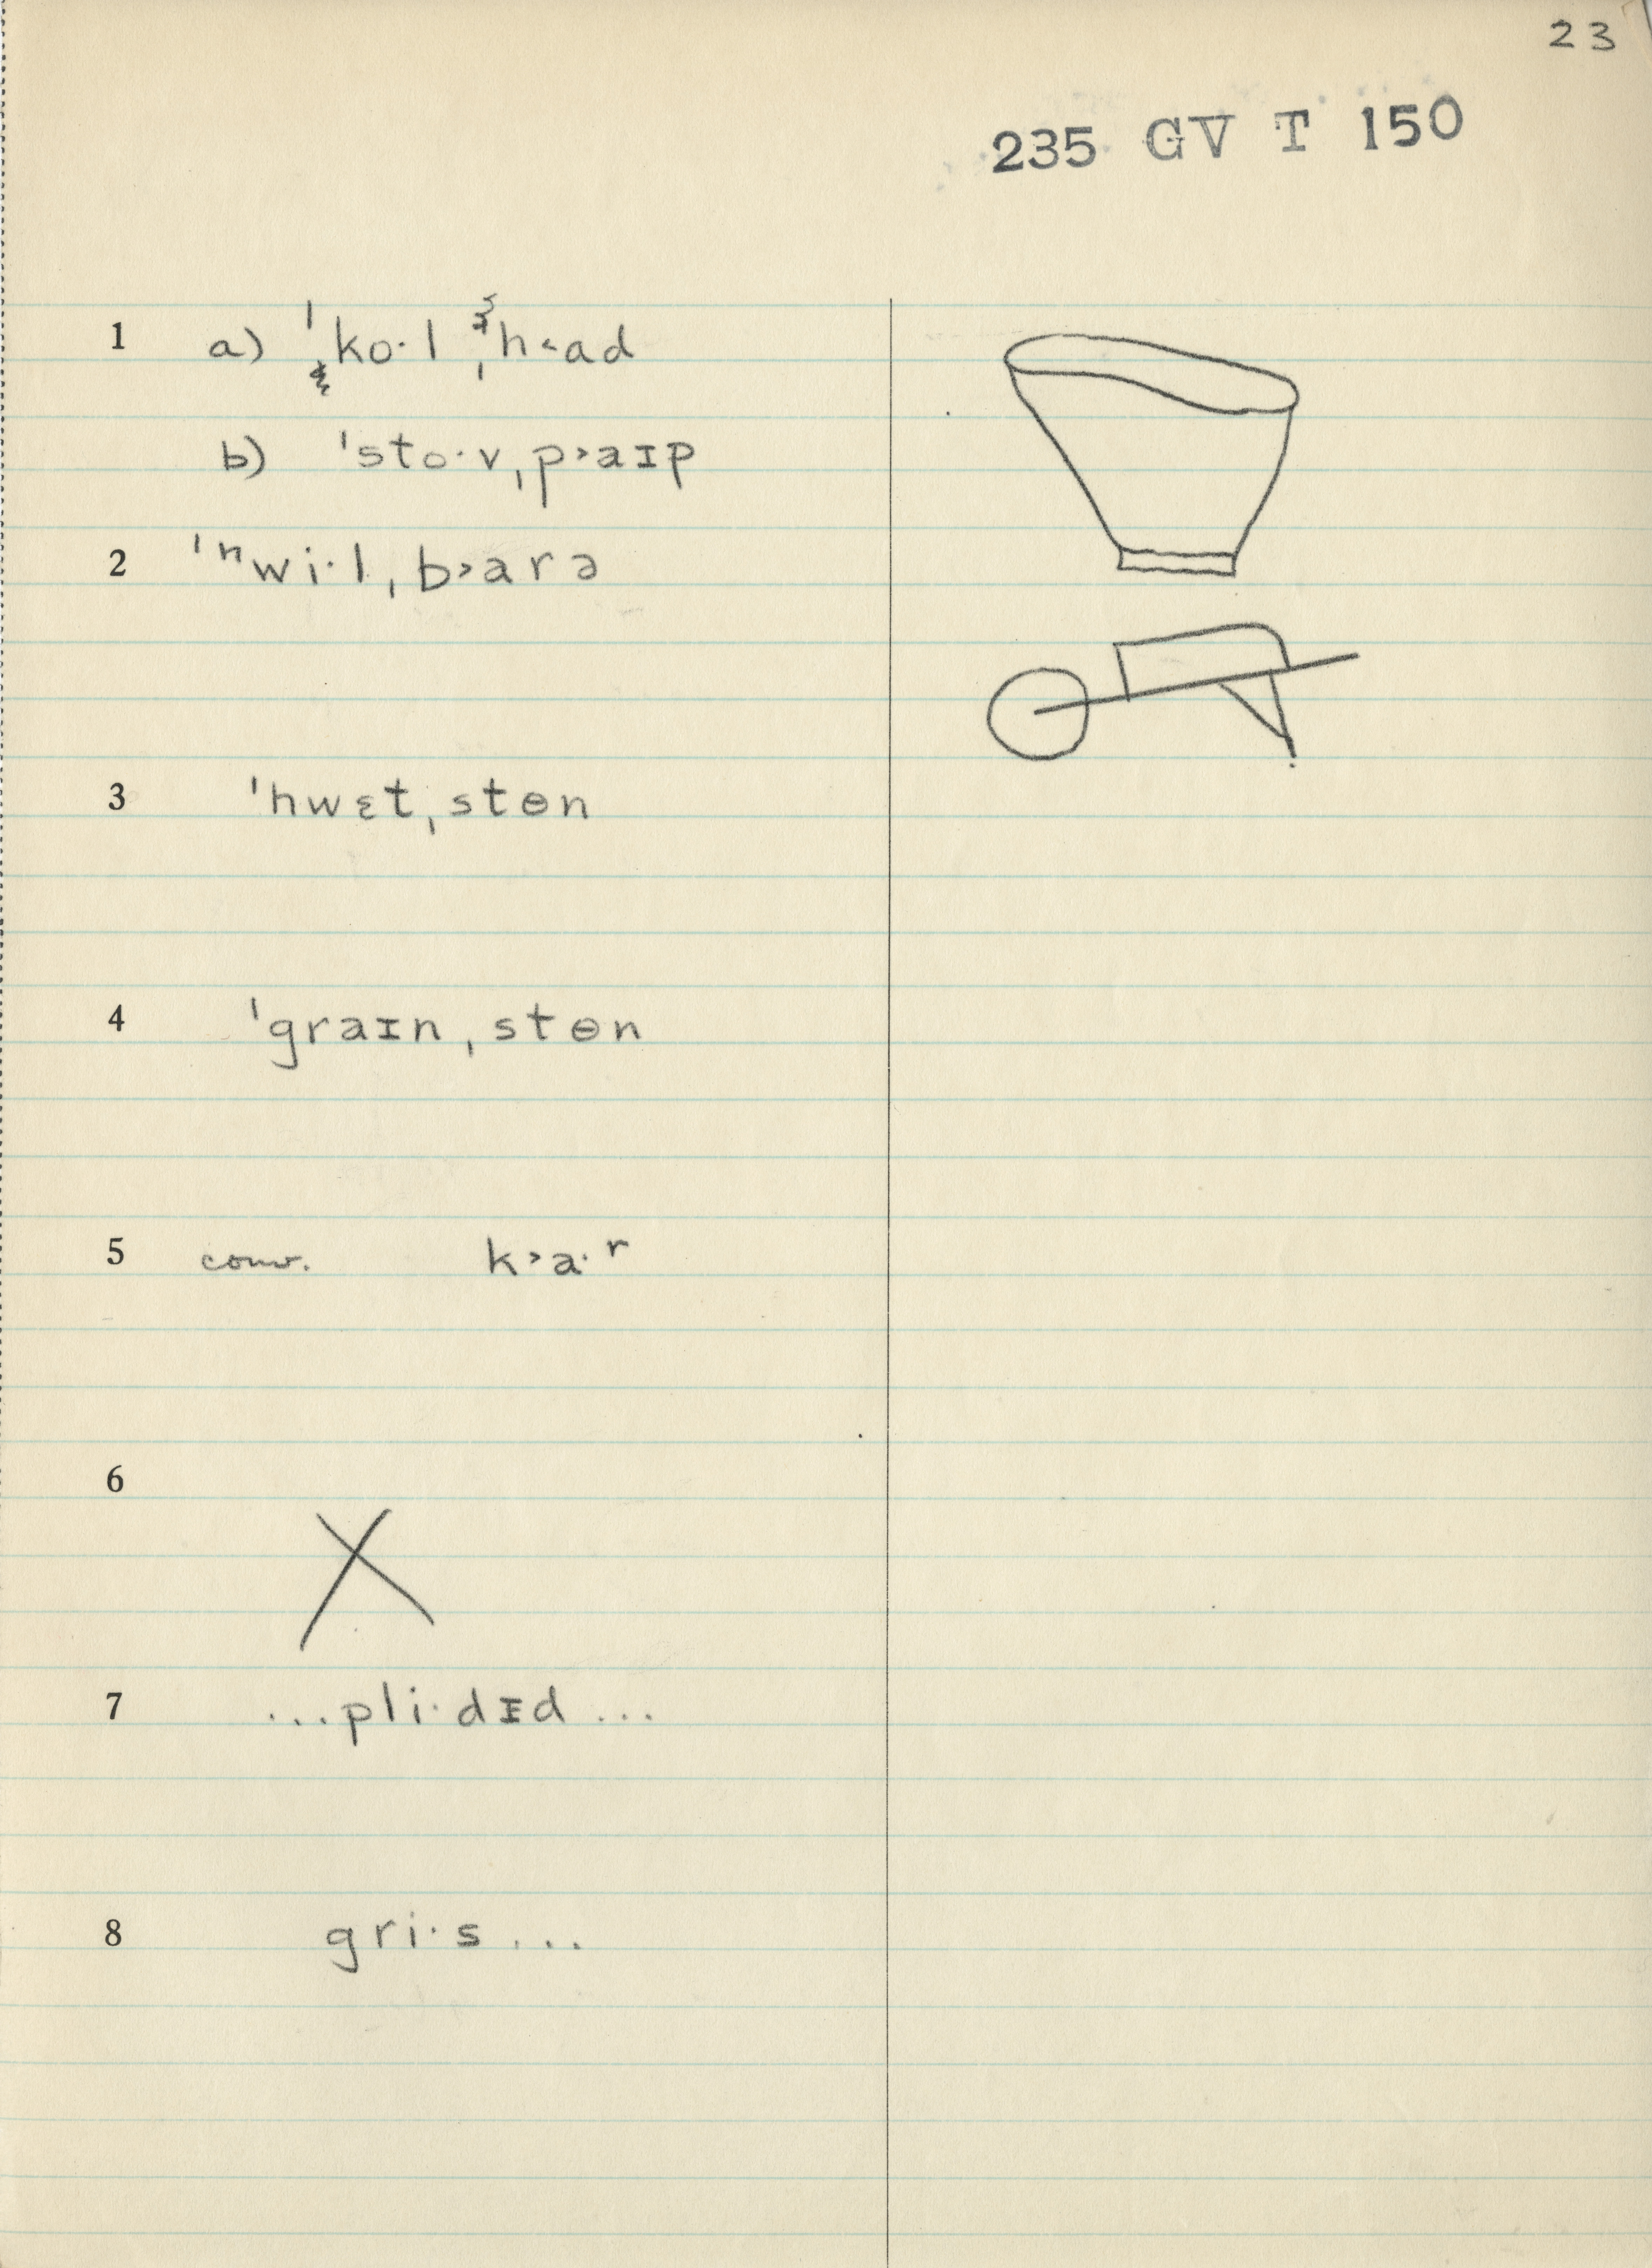 23
235 GV T 150
1 a) ˈko·l ˌh˂ad
b) ˈsto·v ˌp˃aɪp
2 ˈʰwi·l ˌb˃arə
3 ˈhwɛt ˌstɵn
4 ˈgraɪn ˌstɵn
5 conv. k˃a·ʳ
6
X
7 ...pli·dɪd...
8 gri·s...